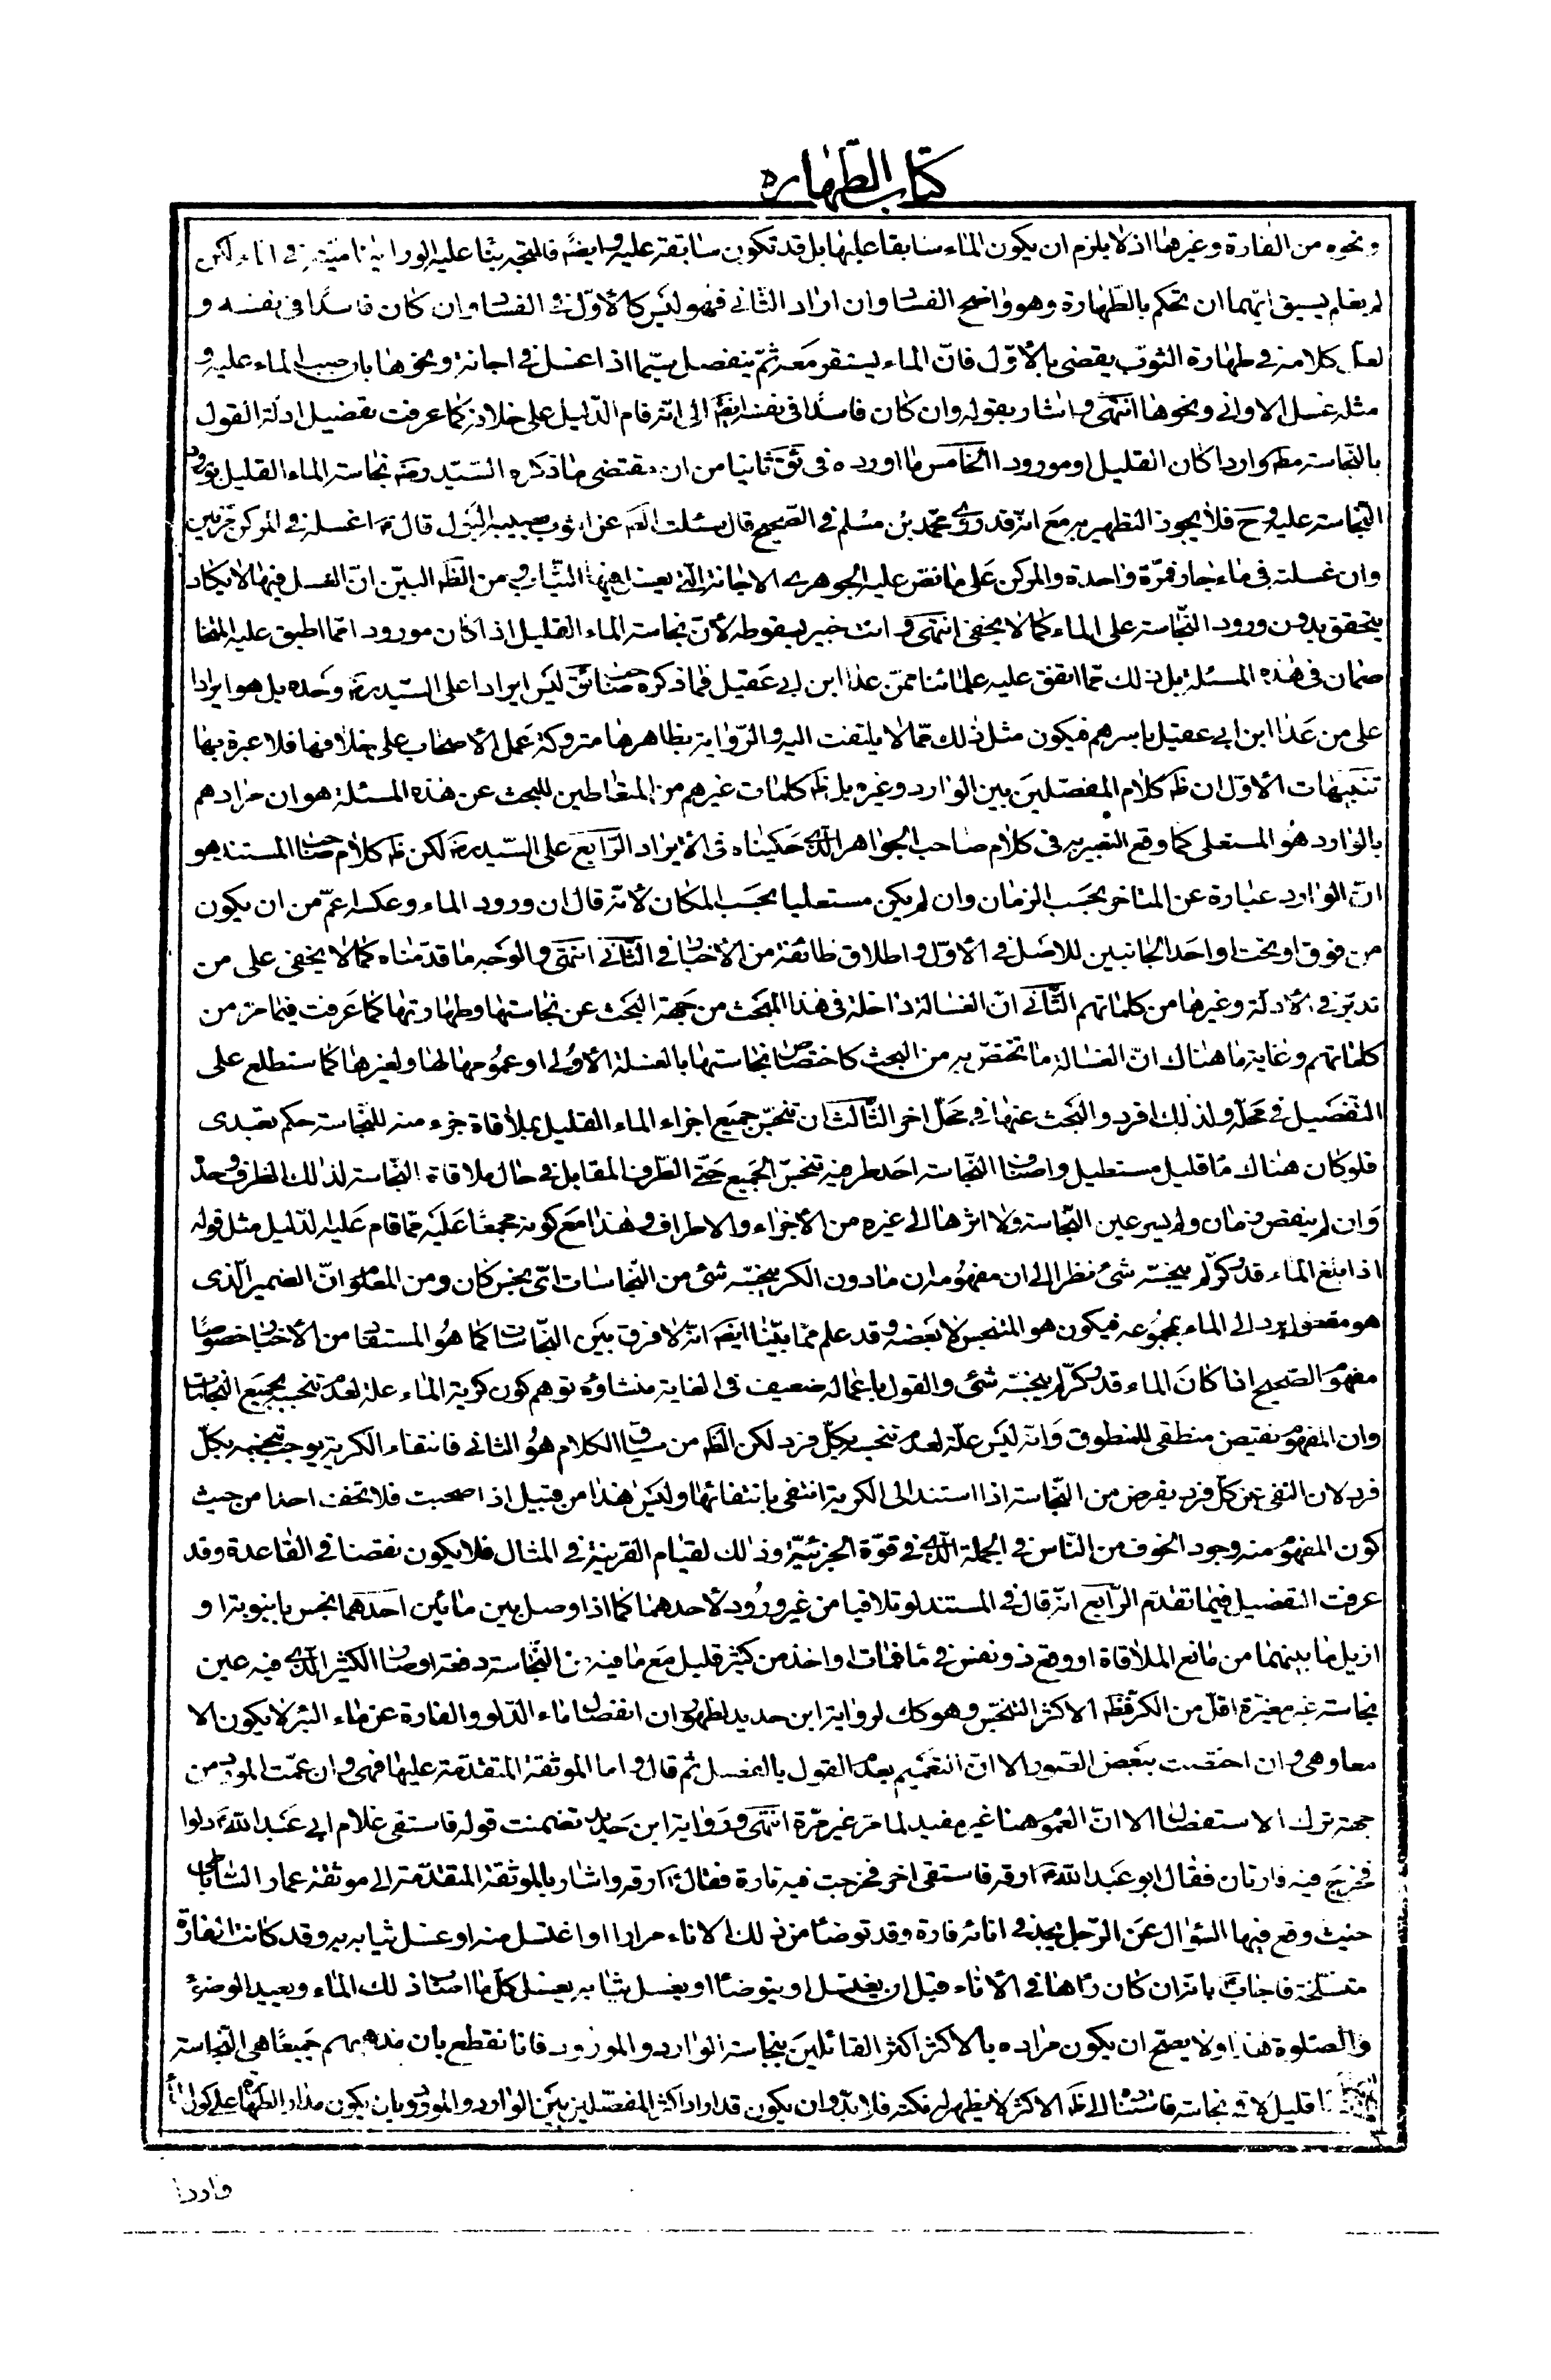 كتاب الطهارة
ونحوه من الفارة وغيرها اذ لا يلزم ان يكون الماء سابقا عليها بل قد تكون سابقة عليه وايضًا فالمتجه بناء عليه لو رأينا ميتة في اناء لكن
لم يعلم يسبق ايّهما ان نحكم بالطّهارة وهو واضح الفساد وان اراد الثّاني فهو ليس كالأوّل في الفساد وان كان فاسدًا في نفسه و
لعل كلامه في طهارة الثوب يقضى بالأوّل فانّ الماء ليستقر معه ثمّ ينفصل سيّما اذا غسل في اجانة ونحوها بان صب الماء عليه و
مثله غسل الاواني ونحوها انتهى واشار بقوله وان كان فاسدًا في نفسه ايضًا الى انّه قام الدّليل على خلافه كما عرفت تفصيل ادلة القول
بالنّجاسة مط واردا كان القليل او مورودا الخامس ما اورده في ئق ثانيا من ان مقتضى ما ذكره السّيّد ره نجاسة الماء القليل بورود
النّجاسة عليه وح فلا يجوز التطهير به مع انّه قد روى محمّد بن مسلم في الصّحيح قال سئلت الصّ عن الثوب يصيبه البول قال ع اغسله في المركن مرّتين
وان غسلته في ماء جار فمرّة واحدة والمركن على ما نصّ عليه الجوهري الاجانة الّتي يغسل فيها الثّياب ومن الظّ البيّن انّ الغسل فيها لا يكاد
يتحقق بدون ورود النّجاسة على الماء كما لا يخفى انتهى وانت خبير بسقوطه لأنّ نجاسة الماء القليل اذا كان مورودا ممّا اطبق عليه المتخا
صمان في هذه المسئلة بل ذلك ممّا اتفق عليه علمائنا ممّن عدا ابن ابي عقيل فما ذكره صاحب ئق ليس ايرادا على السّيّد ره وحده بل هو ايرادا
على من عدا ابن ابي عقيل باسرهم فيكون مثل ذلك ممّا لا يلتفت اليه والرّواية بظاهرها متروكة عمل الأصحاب على خلافها فلا عبرة بها
تنبيهات الأوّل ان ظ كلام المفصّلين بين الوارد وغيره بل ظ كلمات غيرهم من المتعاطين للبحث عن هذه المسئلة هو ان مرادهم
بالوارد هو المستعلى كما وقع التعبير به في كلام صاحب الجواهر الّذي حكيناه في الأيراد الرّابع على السّيّد ره لكن ظ كلام صاحب المستند هو
انّ الوارد عبارة عن المتاخر بحسب الزمان وان لم يكن مستعليا بحسب المكان لأنّه قال ان ورود الماء وعكسه اعمّ من ان يكون
من فوق او تحت او احد الجانبين للاصل في الأوّل واطلاق طائفة من الأخبار في الثّاني انتهى والوجه ما قدّمناه كما لا يخفى على من
تدبّر في الأدلّة وغيرها من كلماتهم الثّاني انّ الغسالة داخلة في هذا المبحث من جهة البحث عن نجاستها وطهارتها كما عرفت فيما مرّ من
كلماتهم وغاية ما هناك انّ الغسالة ما تختصّ به من البحث كاختصاص نجاستها بالغسلة الأولى او عمومها لها ولغيرها كما ستطلع على
التفصيل في محلّه ولذلك افرد والبحث عنها في محلّ اخر الثّالث ان تنجّس جميع اجزاء الماء القليل بملاقاة جزء منه للنّجاسة حكم تعبدى
فلو كان هناك ماء قليل مستطيل واصاب النّجاسة احد طرفيه تنجّس الجميع حتّى الطّرف المقابل في حال ملاقاة النّجاسة لذلك الطرف وحدّ
وان لم ينقض زمان ولم يسر عين النّجاسة ولا اثرها الى غيره من الأجزاء والاطراف وهذا مع كونه مجمعًا عليه ممّا قام عليه الدّليل مثل قوله
اذا بلغ الماء قدر كرّ لم ينجّسه شئ نظرا الى ان مفهومه ان ما دون الكر ينجّسه شئ من النّجاسات اىّ نجس كان ومن المعلوم انّ الضمير الّذى
هو مفعول يرد الى الماء بمجموعه فيكون هو المتنجس لا بعضه وقد علم ممّا بيّنا ايضًا انّه لا فرق بين النّجاسات كما هو المستفاد من الأخبار خصوصًا
مفهوم الصّحيح اذا كان الماء قدر كرّ لم ينجّسه شئ والقول باعماله ضعيف في الغاية منشاؤه توهم كون كرية الماء علة لعدم تنجسه بجميع النجاسات
وان المفهوم نقيض منطقى للمنطوق وانّه ليس علّة لعدم تنجسه بكلّ فرد لكن الظّ من سياق الكلام هو الثانى فانتفاء الكرية يوجب تنجّسه بكلّ
فرد لان النفى عن كلّ فرد يفرض من النّجاسة اذا استند الى الكرية انتفى بانتفائها وليس هذا من قبيل اذا صحبت فلا تخف احدا من حيث
كون المفهوم منه وجود الخوف من النّاس في الجملة الّذي في قوّة الجزئيّة وذلك لقيام القرينة في المثال فلا يكون نقضا في القاعدة وقد
عرفت التفصيل فيما تقدّم الرّابع انّه قال في المستند لو تلاقيا من غير ورود لأحدهما كما اذا وصل بين مائين احدهما نجس بانبوبة او
ازيل ما بينهما من مانع الملاقاة او وقع ذو نفس في ماء فمات او اخذ من كثير قليل مع ما فيه من النّجاسة دفعة او صار الكثير الّذي فيه عين
نجاسة غير مغيّرة اقلّ من الكرّ فظ الاكثر التنجّس وهو كك لرواية ابن حديد لظهور ان انفصال ماء الدّلو والفارة عن ماء البئر لا يكون الا
معا وهى وان اختصت ببعض الصّور الا انّ التعميم بعدم القول بالفصل ثم قال واما الموثقة المتقدّمة عليها فهى وان عمّت المورد من
جهة ترك الاستفصال الا انّ العموم هنا غير مفيد لما مرّ غير مرّة انتهى ورواية ابن حديد تضمنت قوله فاستقى غلام ابي عبد اللّه ع دلوا
فخرج فيه فارتان فقال ابو عبد اللّه ع ارقه فاستقى اخر فخرجت فيه فارة فقال ع ارقه واشار بالموثقة المتقدّمة الى موثقة عمار السّاباطى
حيث وقع فيها السّؤال عن الرّجل يجد في انائه فارة وقد توضّأ من ذلك الاناء مرارا او اغتسل منه او غسل ثيابه به وقد كانت الفارة
متسلّخة فاجاب ع بانّه ان كان راها في الأناء قبل ان يغتسل او يتوضّأ او يغسل ثيابه يغسل كلّ ما اصابه ذلك الماء ويعيد الوضوء
والصّلوة هذا ولا يصحّ ان يكون مراده بالاكثر اكثر القائلين بنجاسة الوارد والمورود فانا نقطع بان مذهبهم جميعًا هى النّجاسة
قليل لاقى نجاسة فاسناد الى ظ الاكثر لا يظهر له نكتة فلا بدّ وان يكون قد اراد اكثر المفصّلين بين الوارد والمورود بان يكون مدار الطّهارة على كون الماء
واردا